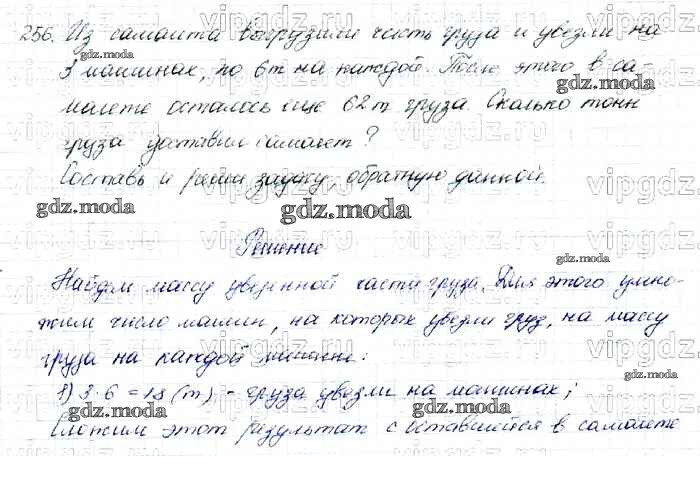 256. Из самолёта выгрузили часть груза и увезли на
3 машинах, по 6 т на каждой. После этого в са-
молете осталось еще 62 т груза. Сколько тонн
груза доставил самолет?
Составь и реши задачу, обратную данной.
Решение
Найдем массу увезенной части груза. Для этого умно-
жим число машин, на которых увезли груз, на массу
груза на каждой машине:
1) 3 · 6 = 18 (т) - груза увезли на машинах;
Сложим этот результат с оставшейся в самолете
vipgdz.ru
gdz.moda